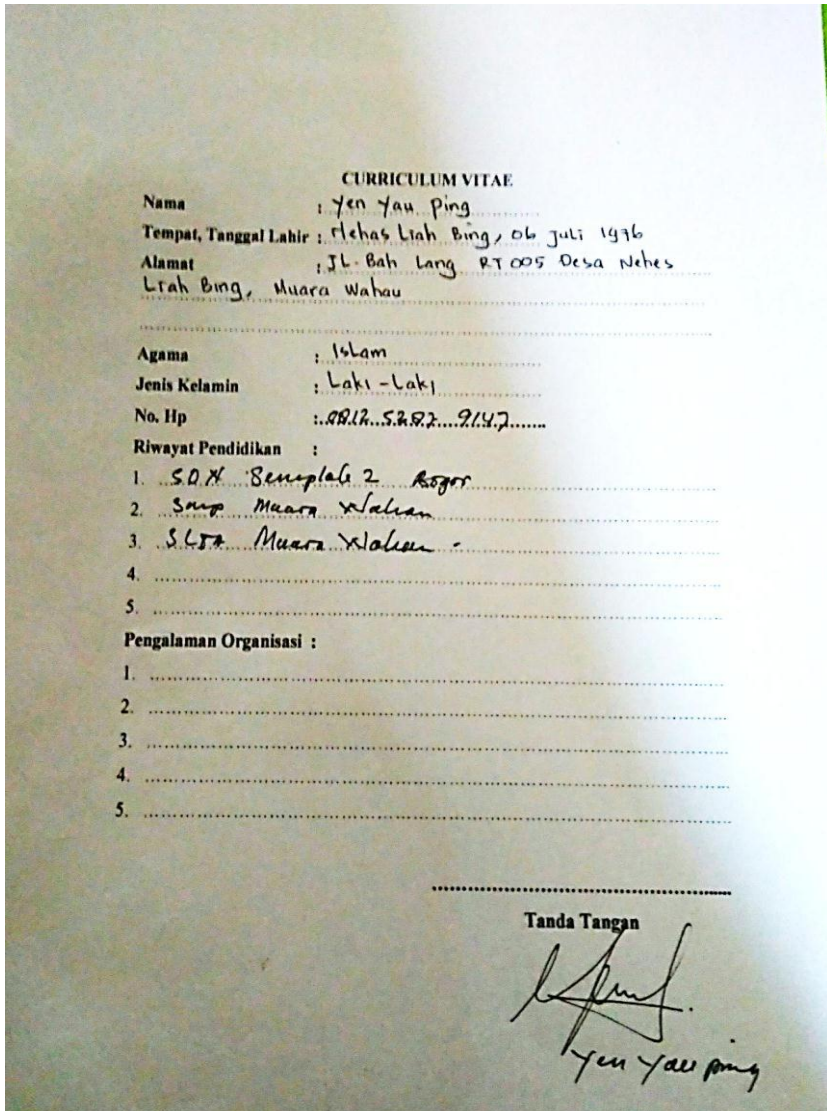 CURRICULUM VITAE
Nama : Yen Yau Ping
Tempat, Tanggal Lahir : Nehas Liah Bing, 06 Juli 1976
Alamat : JL. Bah Lang RT 005 Desa Nehes
Liah Bing, Muara Wahau
Agama : Islam
Jenis Kelamin : Laki-Laki
No. Hp : 0812 5282 9147
Riwayat Pendidikan :
1. SDN Semplak 2 Bogor
2. Smp Muara Wahau
3. SLTA Muara Wahau.
4.
5.
Pengalaman Organisasi :
1.
2.
3.
4.
5.
Tanda Tangan
Yen Yau ping